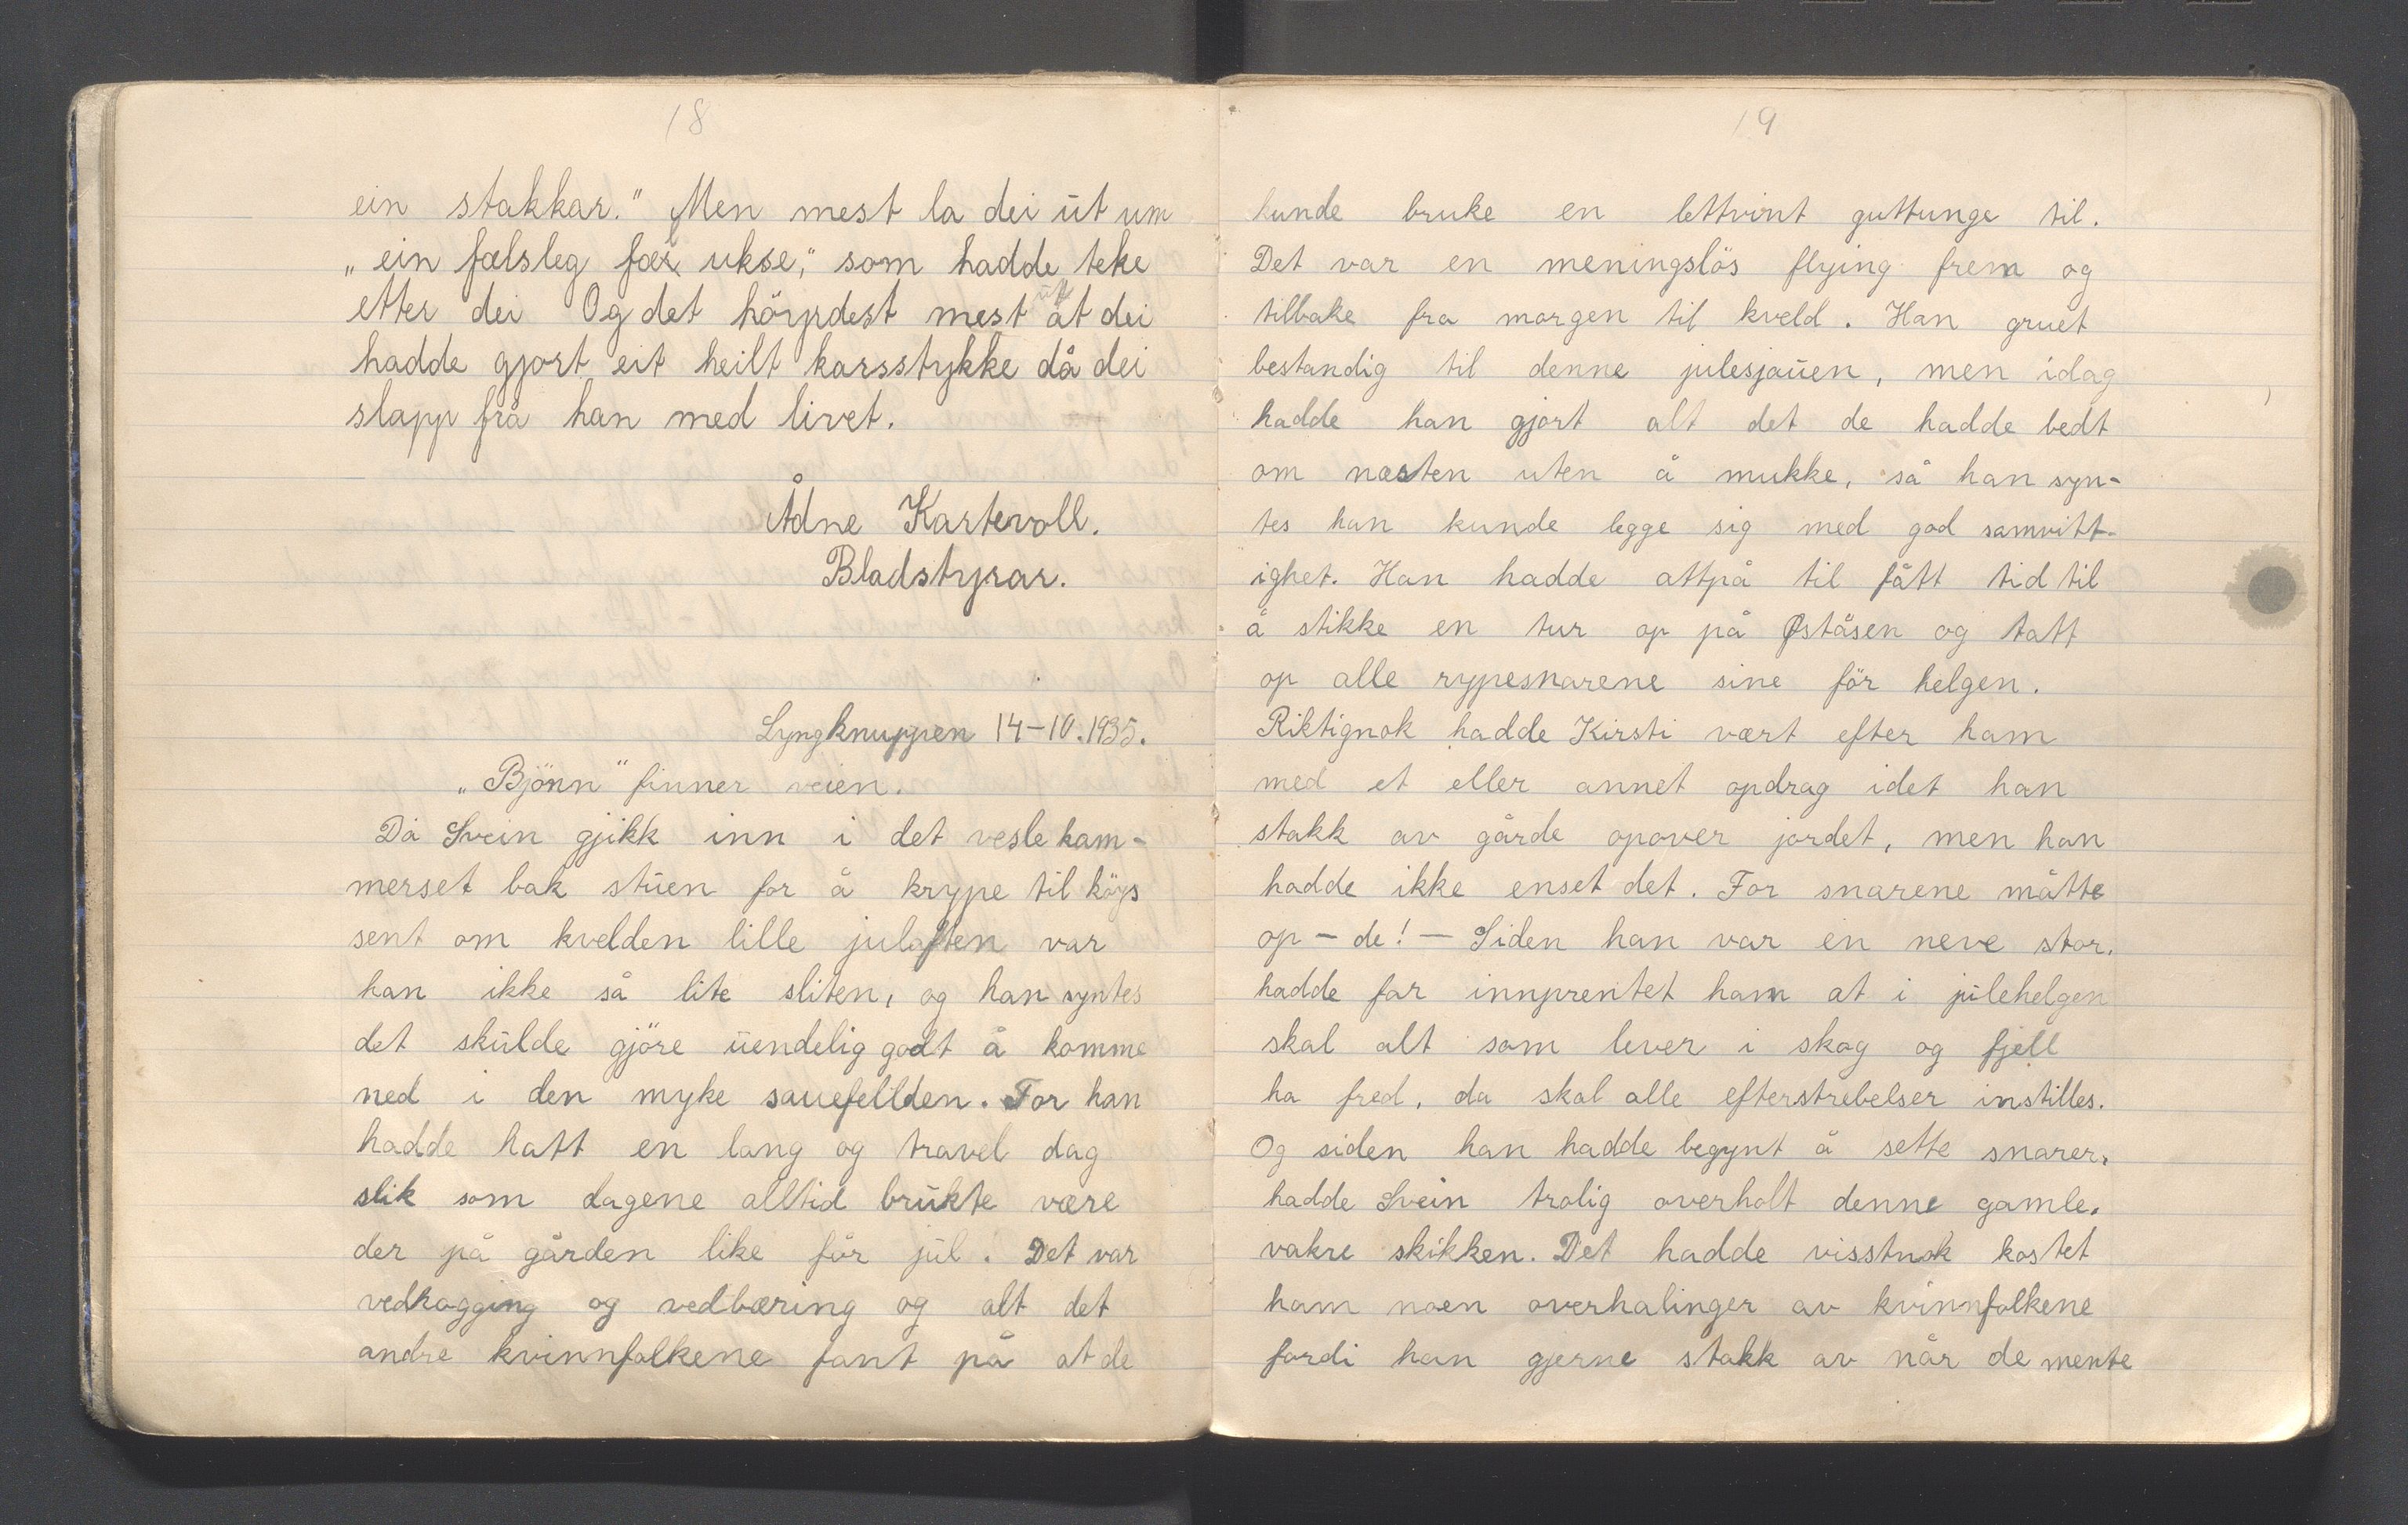 18
ein stakkar." Men mest la dei út um
„ein fælsleg fær ukse," som hadde teke
etter dei Og det höyrdest mest út át dei
hadde gjort eit heilt karsstykke då dei
slapp frå han med livet.
Ådne Kartevoll.
Bladstyrar.
Lyngknuppen 14-10.1935.
„Bjönn" finner veien.
Då Svein gjikk inn i det vesle kam-
merset bak stūen for å krype til köys
sent om kvelden lille julaften var
han ikke så lite sliten, og han syntes
det skūlde gjöre ūendelig godt å komme
ned i den myke sauefellden. For han
hadde hatt en lang og travel dag
slik som dagene alltid brūkte være
der på gården like för jūl. Det var
vedhogging og vedbæring og alt det
andre kvinnfolkene fant på at de
19
kunde bruke en lettvint guttunge til.
Det var en meningslös flying frem og
tilbake fra morgen til kveld. Han gruet
bestandig til denne julesjaūen, men idag
hadde han gjort alt det de hadde bedt
om næsten uten å mukke, så han syn-
tes han kunde legge sig med god samvitt-
ighet. Han hadde attpå til fått tid til
å stikke en tur op på Øståsen og tatt
op alle rypesnarene sine för helgen.
Riktignok hadde Kirsti vært efter ham
med et eller annet opdrag idet han
stakk av gårde opover jordet, men han
hadde ikke enset det. For snarene måtte
op - de! - Siden han var en neve stor,
hadde far innprentet ham at i jūlehelgen
skal alt som lever i skog og fjell
ha fred, da skal alle efterstrebelser instilles.
Og siden han hadde begynt å sette snarer,
hadde Svein trolig overholt denne gamle,
vakre skikken. Det hadde visstnok kostet
ham noen overhalinger av kvinnfolkene
fordi han gjerne stakk av når de mente